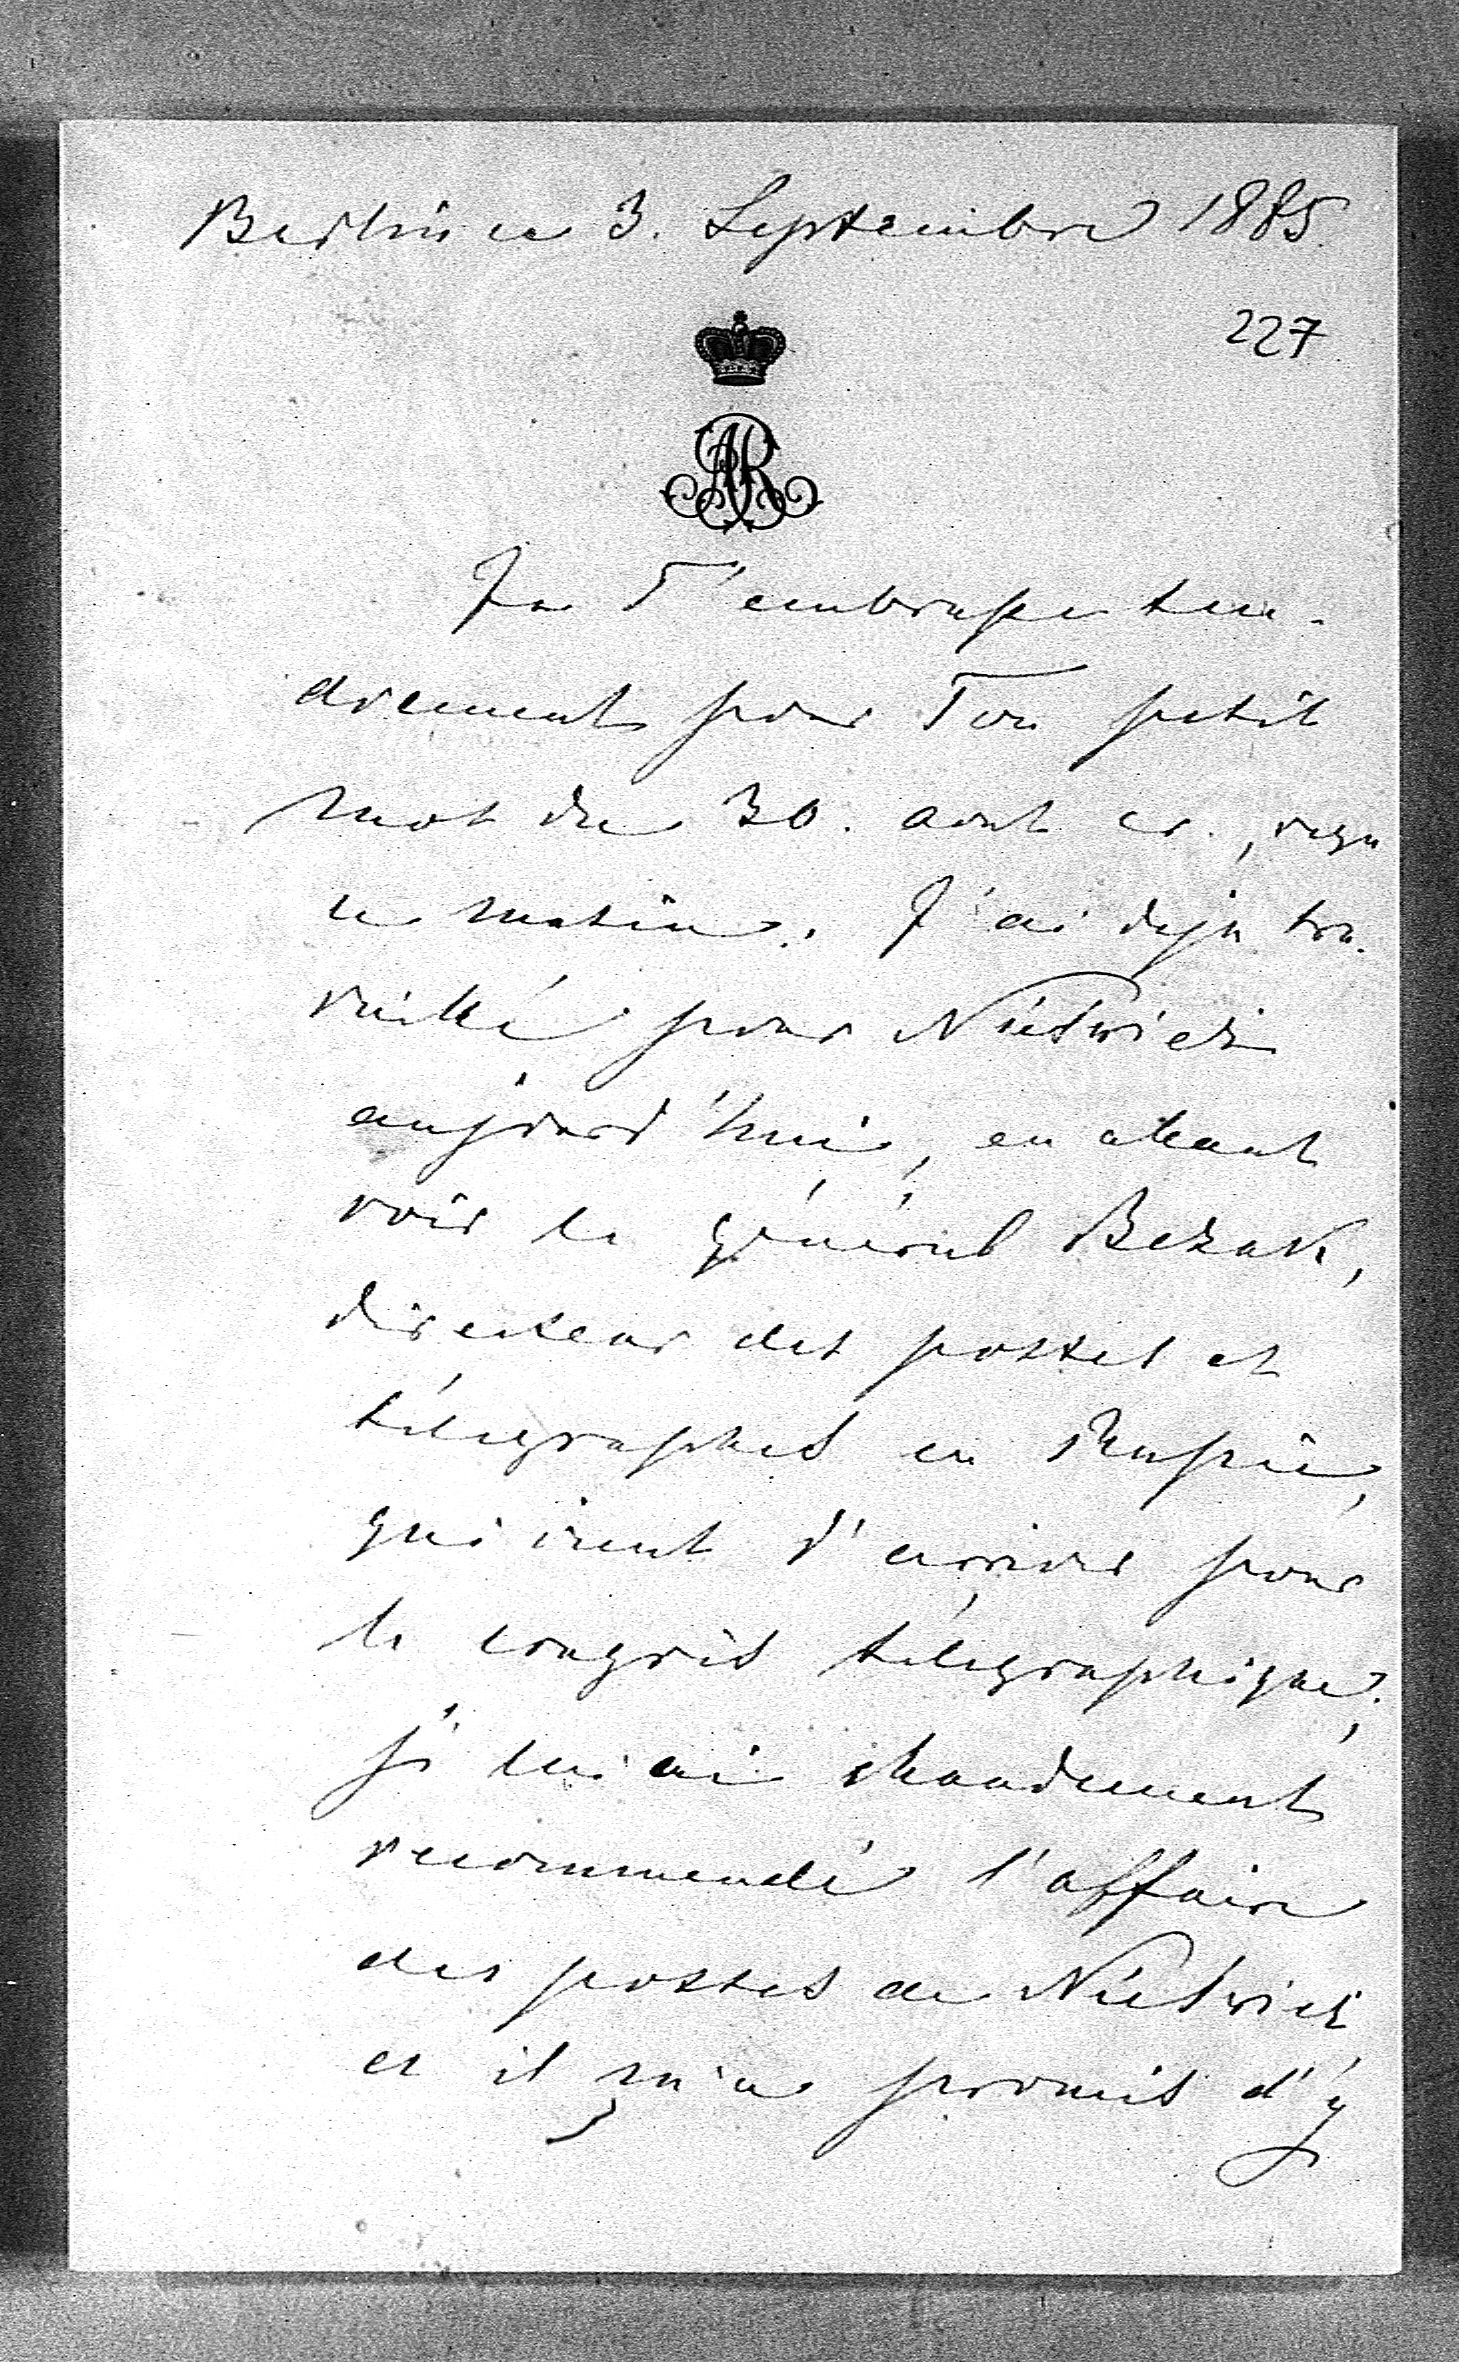 Berlin ce 3. Septembre 1885.
227
AR
Je T'embrasse ten-
drement pour Ton petit
mot du 30. aout cr., reçu
ce matin. J'ai deja tra-
vaillé pour Nieświeź
aujourd'hui, en allant
voir le général Bezak,
directeur des postes et
télégraphes en Russie,
qui vient d'arriver pour
le congrès télégraphique;
je lui ai chaudement
recommendé l'affaire
des postes de Nieświeź
et il m'a promis d'y